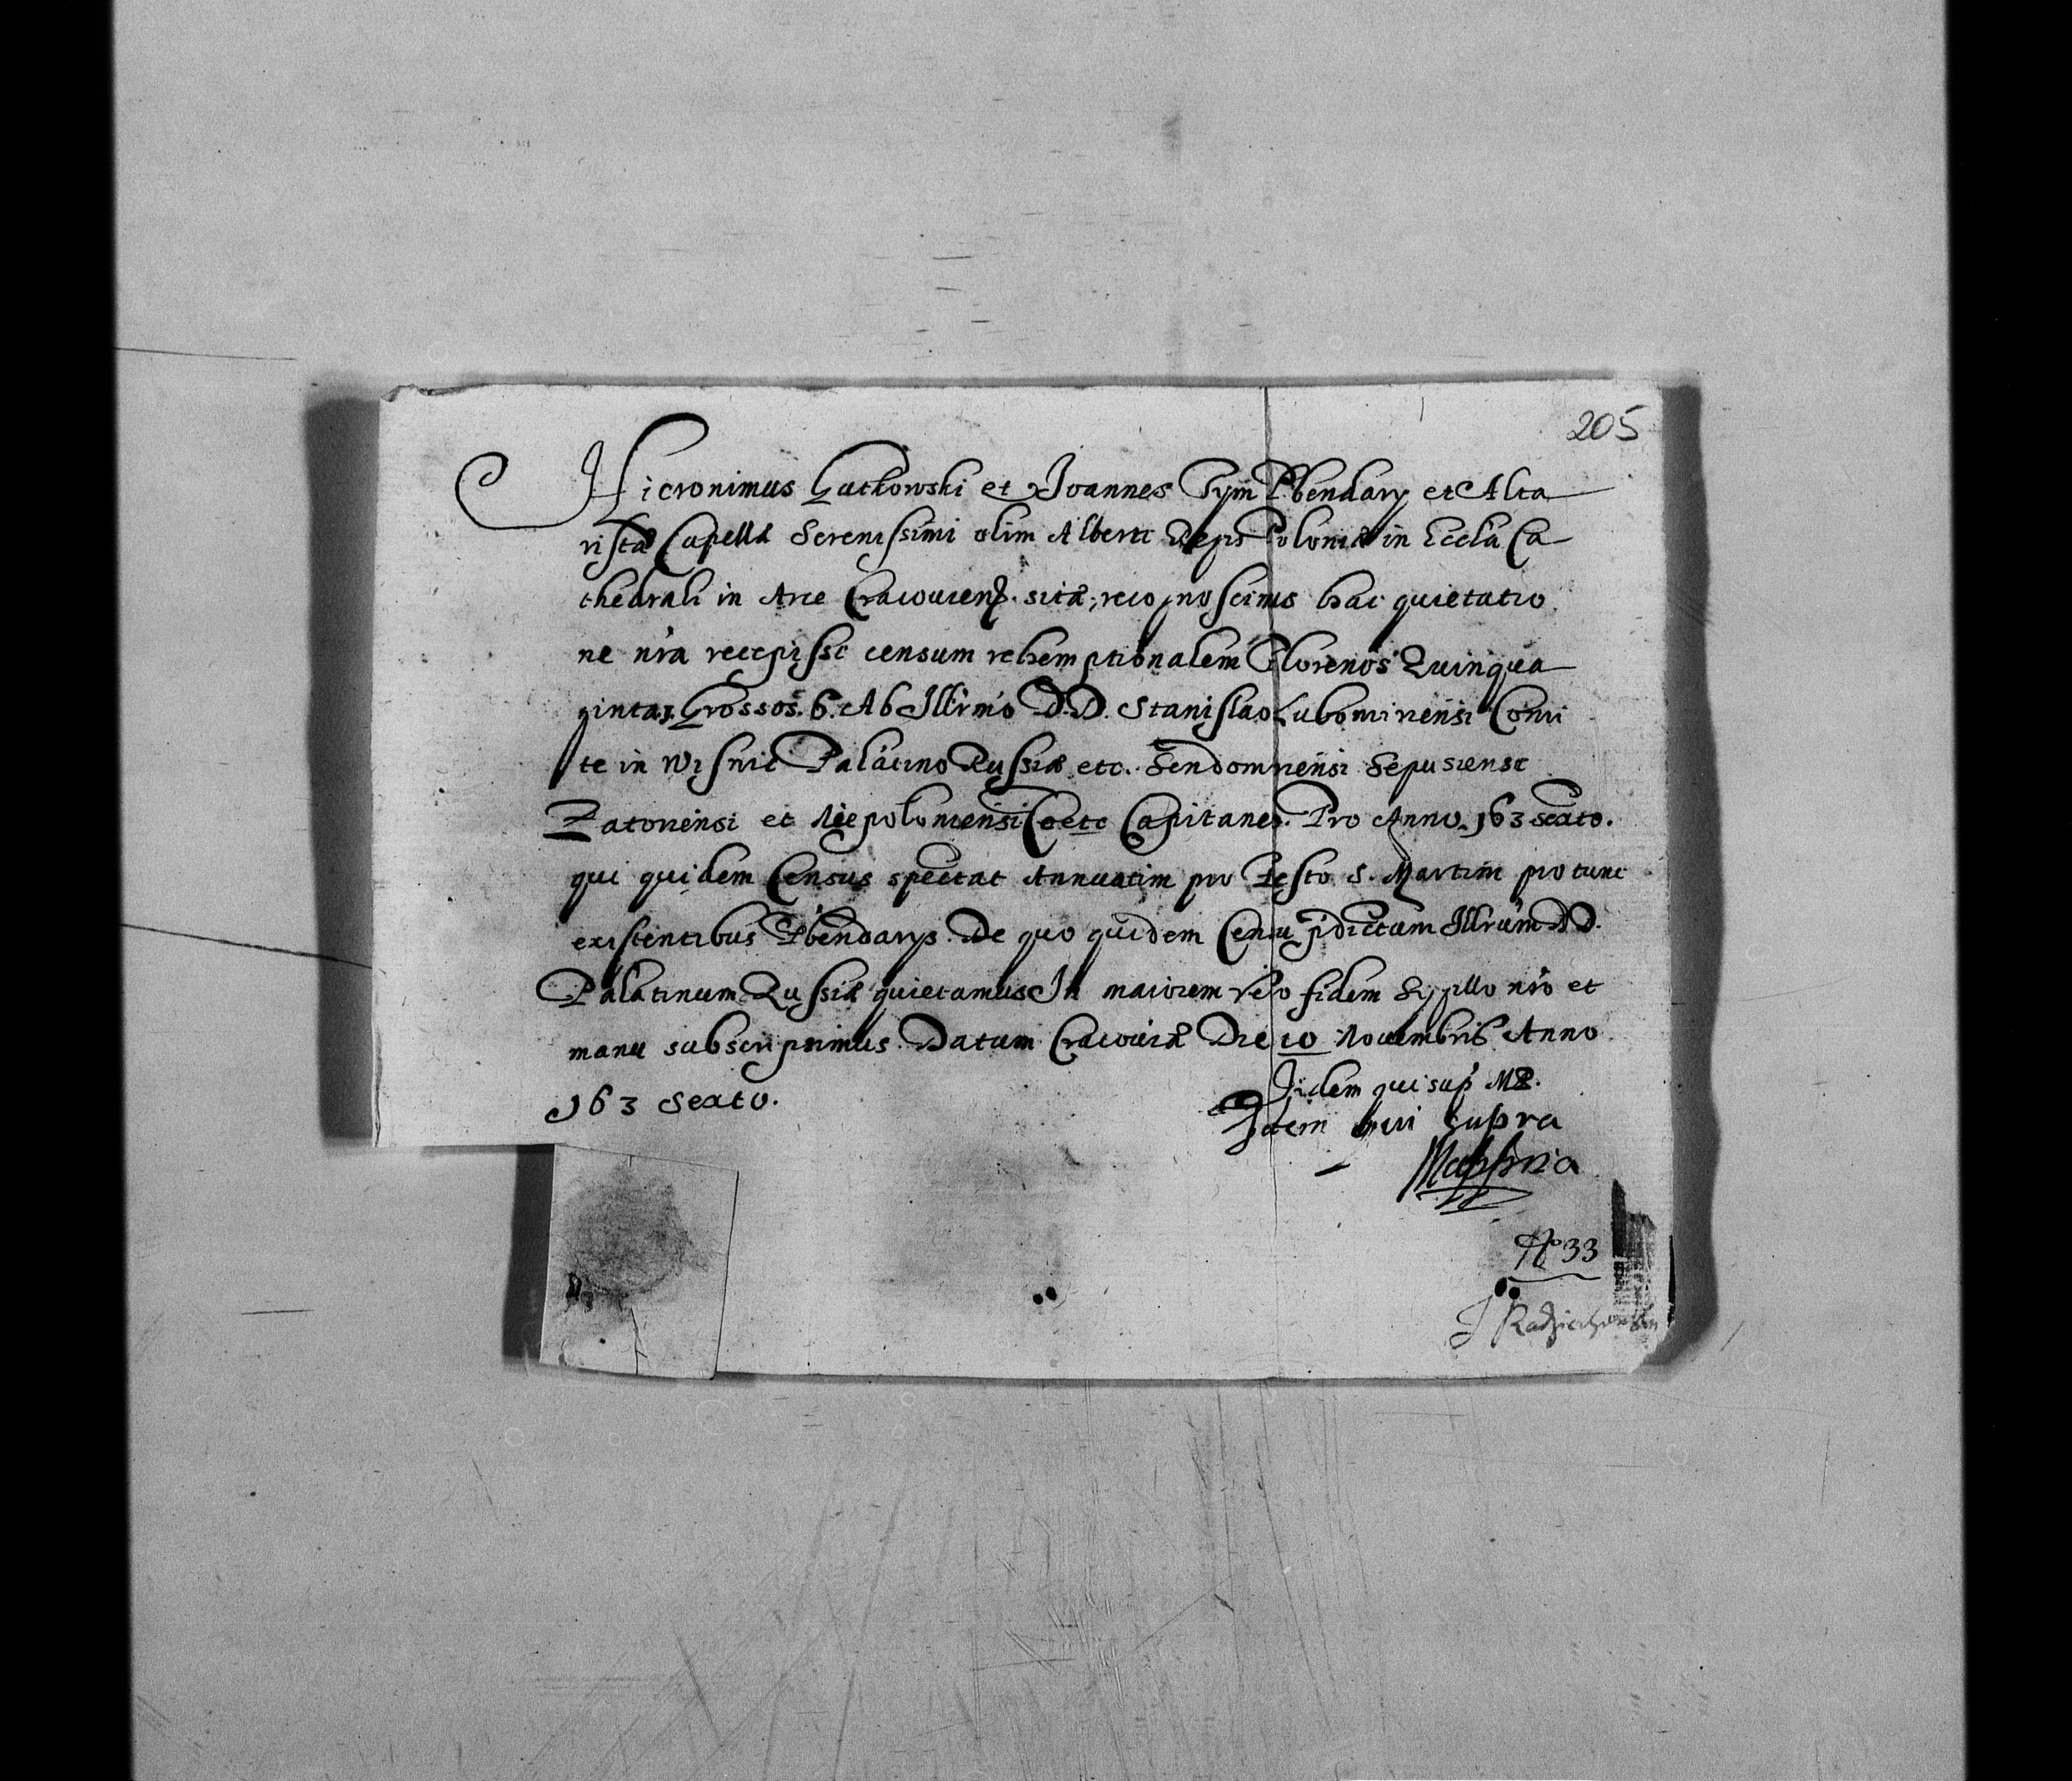 205
Hieronimus Gutkowski et Joannes Tym Pbendary et Alta
ristæ Capellæ Serenissimi olim Alberti Regis Poloniæ in Eccla Ca
thedrali in Arce Cracouien. sitæ, recognoscimus hac quietatio
ne nra recepisse censum rehemptionalem Florenos Quinqua
ginta3. Grossos. 6. Ab Illrmo D.D. Stanislao Lubomiriensi Comi
te in Wisnic Palatino Russiæ etc. Sendomiriensi Sepusiensi
Zatoriensi et Niepolomiensi etc Capitaneo. Pro Anno. 163 sexto.
qui quidem Census spectat Annuatim pro Festo S. Martini pro tunc
existentibus Pbendarys. De quo quidem Censu pdictum Illrum DD.
Palatinum Russiæ quietamus In maiorem vero fidem Sygillo nro et
manu subscripsimus. Datum Cracouiæ Die 10 Nouembris Anno
163 Sexto.
Iidem qui sup
Idem qui supra
No 33